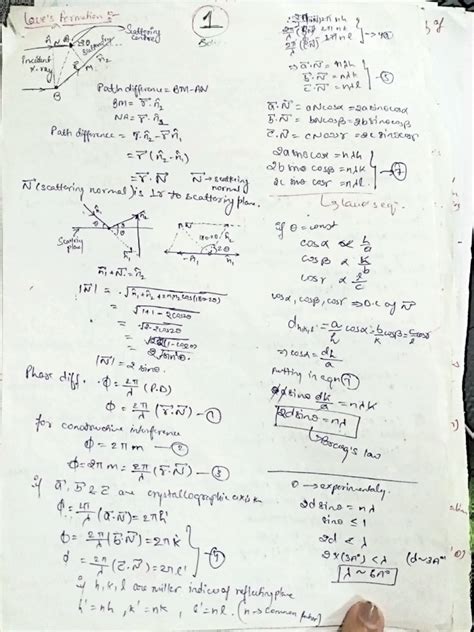 Laue's Formation
1
Scattering
centre
Incident
x-ray
A
N
M
B
Path difference = BM - AN
BM = r⃗.n̂₂
NA = r⃗.n̂₁
Path difference = r⃗.n̂₂ - r⃗.n̂₁
= r⃗(n̂₂-n̂₁)
= r⃗.N⃗   N⃗ → scattering
normal
N⃗ (scattering normal) is ⊥r to scattering plane.
plane
n̂₁+N⃗ = n̂₂
|N⃗| = √n̂₁+n̂₂+2n₁n₂cos(180-2θ)
= √1+1-2cos2θ
= √2-2cos2θ
= √2(1-cos2θ)
= 2√sin²θ
|N⃗| = 2 sinθ
Phase diff. φ = 2π/λ (P.D)
φ = 2π/λ (r⃗.N⃗) - ①
for constructive interference
φ = 2πm - ②
φ = 2πm = 2π/λ (r⃗.N⃗) - ③
if a⃗, b⃗ & c⃗ are crystallographic axis
φ = 2π/λ (a⃗.N⃗) = 2πh'
φ = 2π/λ (b⃗.N⃗) = 2πk'
φ = 2π/λ (c⃗.N⃗) = 2πl'
④
if h, k, l are miller indices of reflecting plane
h' = nh, k' = nk, l' = nl. (n → common factor)
⇒ a⃗.N⃗ = nhλ
b⃗.N⃗ = nkλ
c⃗.N⃗ = nlλ
a⃗.N⃗ = aNcosα = 2a sinθcosα
b⃗.N⃗ = bNcosβ = 2b sinθcosβ
c⃗.N⃗ = cNcosr = 2c sinθcosr
2a sinθ cosα = nλh
2b sinθ cosβ = nλk
2c sinθ cosr = nλl
⑦
↳ Laue's eq.
if θ = const
cosα ∝ h/a
cosβ ∝ k/b
cosr ∝ l/c
cosα, cosβ, cosr ⇒ D.C of N⃗
d_hkl = a/h cosα = b/k cosβ = c/l cosr
⇒ cosα = dh/a
putting in eqn ⑦
2a sinθ dh/a = nλh
2d sinθ = nλ
↳ Bragg's law
θ → experimentaly.
2d sinθ = nλ
sinθ ≤ 1
(d~3A°)
λ ~ 6A°